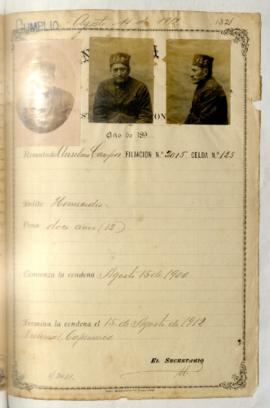 CUMPLIO Agosto 14 de 1912 1321
Año de 189
Rematado Anselmo Campos FILIACION N.º 2015 CELDA N.º 125
Delito Homicidio
Pena doce años (12)
Comienza la condena Agosto 15 de 1900
Termina la condena el 15 de Agosto de 1912
EL SECRETARIO